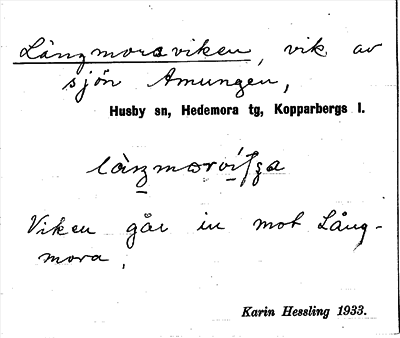 Långmoraviken, vik av
sjön Amungen,
Husby sn, Hedemora tg, Kopparbergs l.
Viken går in mot Lång-
mora.
Karin Hessling 1933.